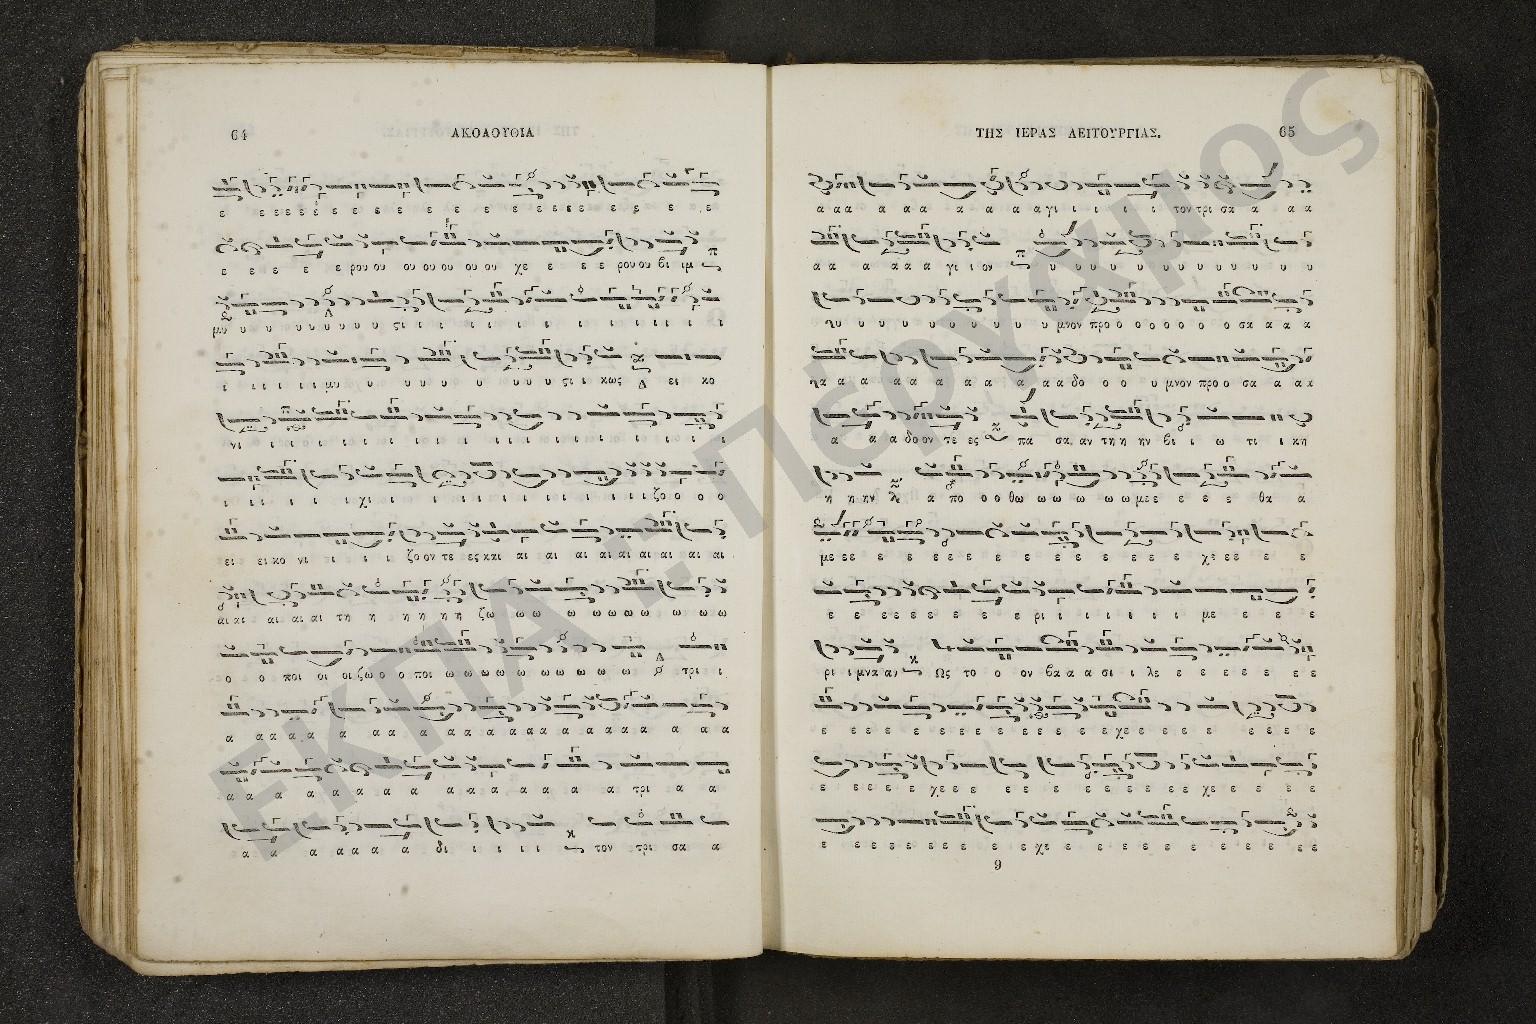 64 ΑΚΟΛΟΥΘΙΑ
ε εεεεε ε ε ε ε ε ε ε ε ε ε ε ε ε ε ε ε ε
ε ε ε ε ε ε ρου ου ου ου ου ου ου χε ε ε ε ρου ου βι ιμ
μυ υ υ υ υ υ υ υ υ ςι ι ι ι ι ι ι ι ι ι ι ι ι ι
ι ι ι ι ι μυ υ υ υ υ υ υ υ υ ςι ι κως ει κο
νι ι ι ι ι ι ι ι ι ι ι ι ι ι ι ι
ι ι ι ι χι ι ι ι ι ι ι ι ι ι ι ι ι ζο ο ο ο
ει ει κο νι ι ι ι ζο ον τε ες και αι αι αι αι αι αι αι αι αι
αι αι αι αι αι τη η η η η η ζω ω ω ω ω ω ω ω ω ω ω
ο ο ποι οι οι ζω ο ο ποι ω ω ω ω ω ω ω ω ω ω ω τρι ι
α α α α α α α α α α α α α α α α α α α α α α α
α α α α α α α α α α α α α α α τρι α α
α α α α α α α δι ι ι ι ι τον τρι σα α
ΤΗΣ ΙΕΡΑΣ ΛΕΙΤΟΥΡΓΙΑΣ. 65
α α α α α α α α α α γι ι ι ι ι τον τρι σα α α α
α α α α α α γι ι ον υ υ υ υ υ υ υ υ υ υ υ υ
υ υ υ υ υ υ υ υ υ υ μνον προ ο ο ο ο ο ο ο σα α α α
α α α α α α α α α α α δο ο ο ο υ μνον προ ο σα α α α
α α α δο ον τε ες πα σα αν τη η ην βι ι ω τι ι κη
η η ην α πο ο ο θω ω ω ω ω ω με ε ε ε ε ε θα α
με ε ε ε ε ε ε ε ε ε ε ε ε ε ε ε ε χε ε ε ε ε
ε ε ε ε ε ε ε ε ε ε ρι ι ι ι ι ι ι με ε ε ε
ρι ι μνα αν Ως το ο ον βα α α σι ι λε ε ε ε ε ε ε ε
ε ε ε ε ε ε ε ε ε ε ε ε χε ε ε ε ε ε ε ε ε
ε ε ε ε ε χε ε ε ε ε ε ε ε ε ε ε ε χε ε ε ε ε
ε ε ε ε ε ε ε ε ε ε ε χε ε ε ε ε ε ε ε ε ε ε ε
9
ΕΚΠΑ - Πέργαμος